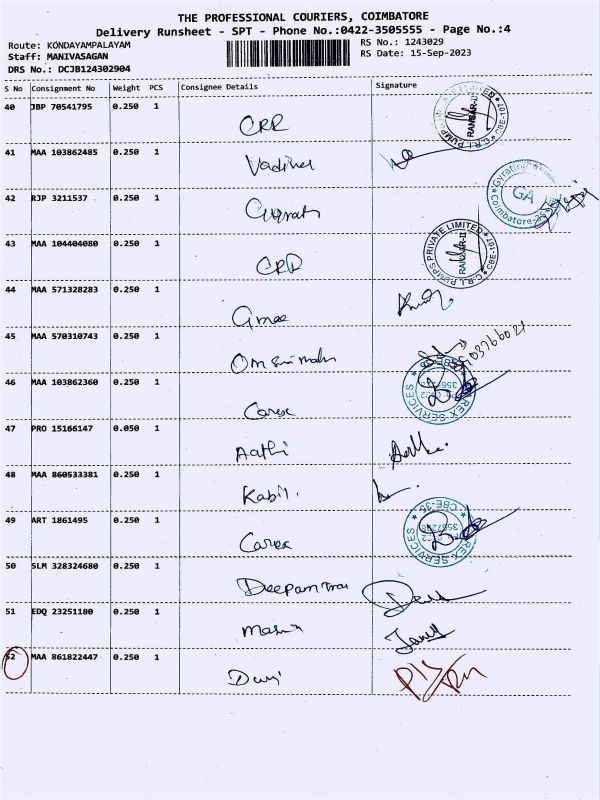 THE PROFESSIONAL COURIERS, COIMBATORE
Delivery Runsheet - SPT - Phone No.:0422-3505555 - Page No.:4
Route: KONDAYAMPALAYAM
Staff: MANIVASAGAN
DRS No.: DCJB124302904
RS No.: 1243029
RS Date: 15-Sep-2023
S No Consignment No Weight PCS Consignee Details Signature
40 JBP 70541795 0.250 1
CRR
41 MAA 103862485 0.250 1
42 RJP 3211537 0.250 1
43 MAA 104404080 0.250 1
C.R.I. PUMPS PRIVATE LIMITED
RANSAR-II
CBE-107
44 MAA 571328283 0.250 1
45 MAA 570310743 0.250 1
46 MAA 103862360 0.250 1
Carex
REX SERVICES
47 PRO 15166147 0.050 1
Aathi
48 MAA 860533381 0.250 1
Kabil.
49 ART 1861495 0.250 1
Carex
REX SERVICES
CBE-35
50 SLM 328324680 0.250 1
51 EDQ 23251180 0.250 1
52 MAA 861822447 0.250 1